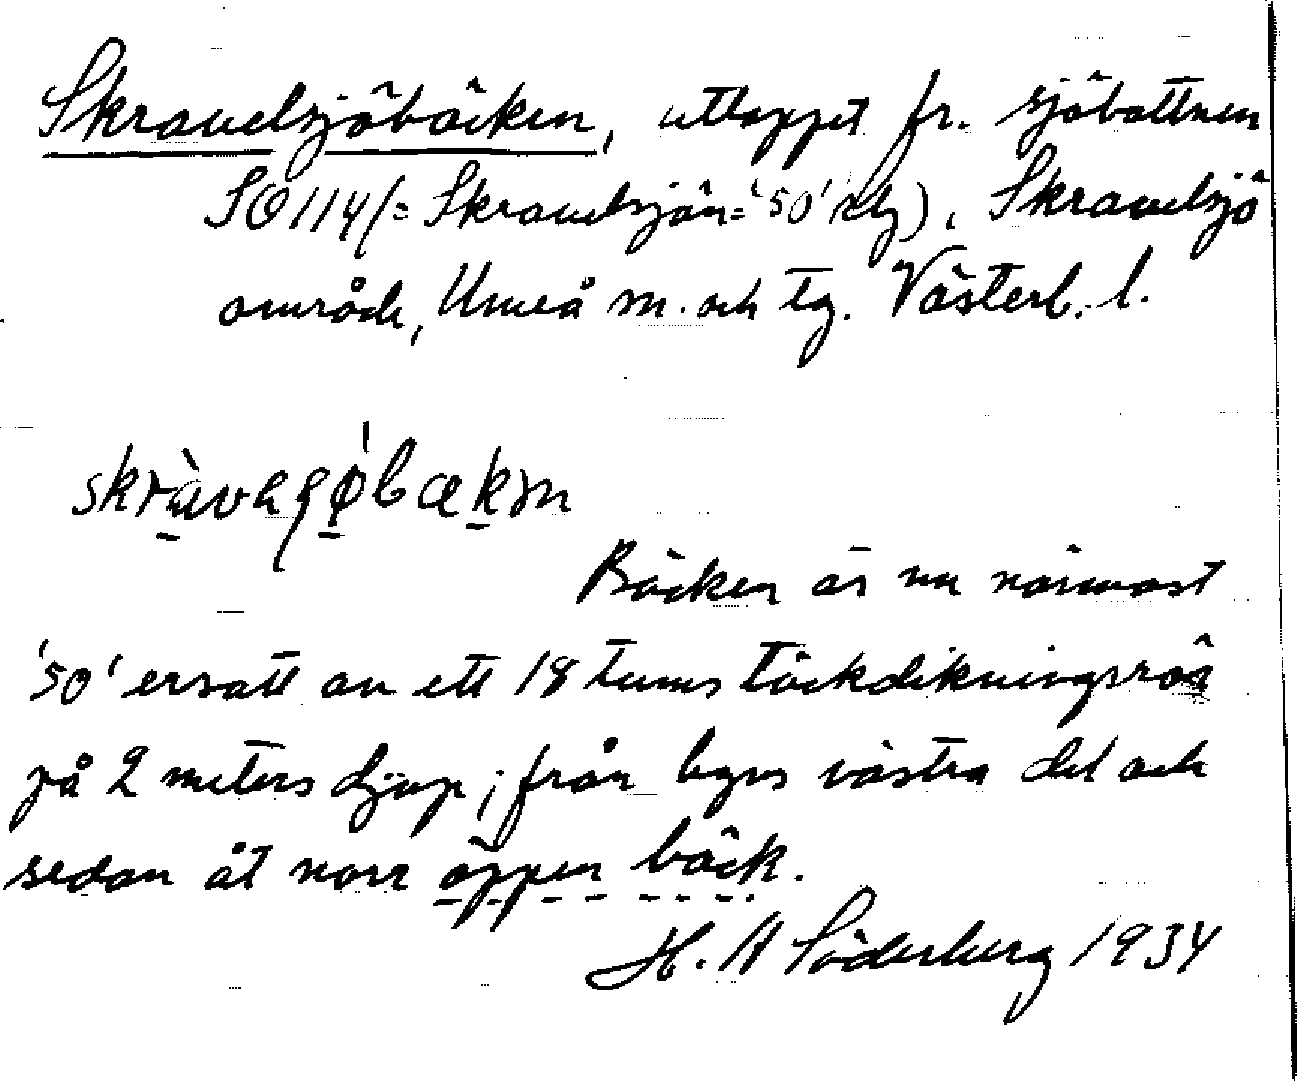 Skravelsjöbäcken, utloppet fr. sjöbottnen
SO 114 (= Skravelsjön = '50' klg), Skravelsjö
område, Umeå m. och tg. Västerb. l.
skràvaʂǿbækən
Bäcken är nu närmast
'50' ersatt av ett 18 tums täckdikningsrör
på 2 meters djup; från byns västra del och
sedan åt norr öppen bäck.
H. A Söderberg 1934